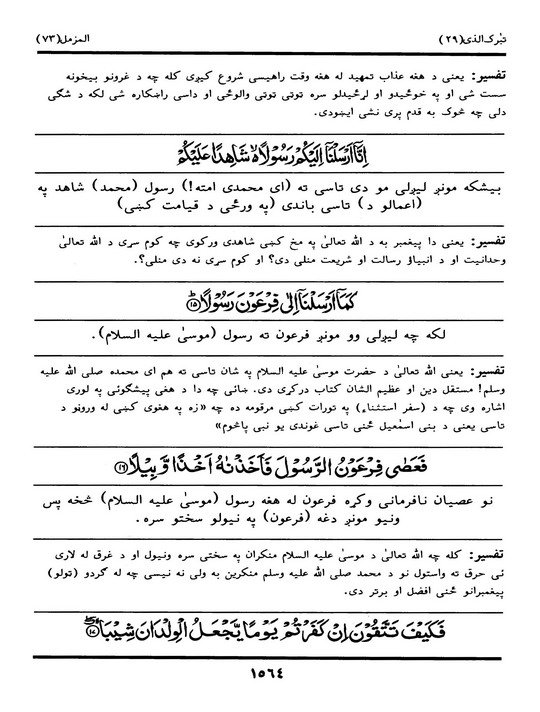 تبٰرک الذی (۲۹)
المزمل (۷۳)
تفسیر: یعنی د هغه عذاب تمهید له هغه وقت راهیسې شروع کیږی کله چه د غرونو بیخونه
سست شی او په خوځیدو او لړځیدلو سره توټی توټی والوځی او داسی راښکاره شی لکه د شګی
دلی چه څوک به قدم پری نشی ایښودی.
اِنَّاۤ اَرْسَلْنَاۤ اِلَیْكُمْ رَسُوْلًا۬ۙ شَاهِدًا عَلَیْكُمْ
بیشکه مونږ لیږلی مو دی تاسی ته (ای محمدی امته!) رسول (محمد) شاهد په
(اعمالو د) تاسی باندی (په ورځی د قیامت کښی)
تفسیر: یعنی دا پیغمبر به د الله تعالیٰ په مخ کښی شاهدی ورکوی چه کوم سړی د الله تعالیٰ
وحدانیت او د انبیاؤ رسالت او شریعت منلی دی؟ او کوم سړی نه دی منلی؟.
كَمَاۤ اَرْسَلْنَاۤ اِلٰی فِرْعَوْنَ رَسُوْلًا ﴿۱۵﴾
لکه چه لیږلی وو مونږ فرعون ته رسول (موسیٰ علیه السلام).
تفسیر: یعنی الله تعالیٰ د حضرت موسیٰ علیه السلام په شان تاسی ته هم ای محمده صلی الله علیه
وسلم! مستقل دین او عظیم الشان کتاب درکړی دی. ښائی چه دا د هغی پیشګوئی په لوری
اشاره وی چه د (سفر استثناء) په تورات کښی مرقومه ده چه «زه په هغوی کښی له وروڼو د
تاسی یعنی د بنی اسمٰعیل ځنی تاسی غوندی یو نبی پاڅوم»
فَعَصٰی فِرْعَوْنُ الرَّسُوْلَ فَاَخَذْنٰهُ اَخْذًا وَّبِیْلًا ﴿۱۶﴾
نو عصیان نافرمانی وکړه فرعون له هغه رسول (موسیٰ علیه السلام) څخه پس
ونیو مونږ دغه (فرعون) په نیولو سختو سره.
تفسیر: کله چه الله تعالیٰ د موسیٰ علیه السلام منکران په سختی سره ونیول او د غرق له لاری
ئی حرق ته واستول نو د محمد صلی الله علیه وسلم منکرین به ولی نه نیسی چه له ګردو (ټولو)
پیغمبرانو ځنی افضل او برتر دی.
فَكَیْفَ تَتَّقُوْنَ اِنْ كَفَرْتُمْ یَوْمًا یَّجْعَلُ الْوِلْدَانَ شِیْبَاۨ ﴿۱۷﴾
۱۵۶۴